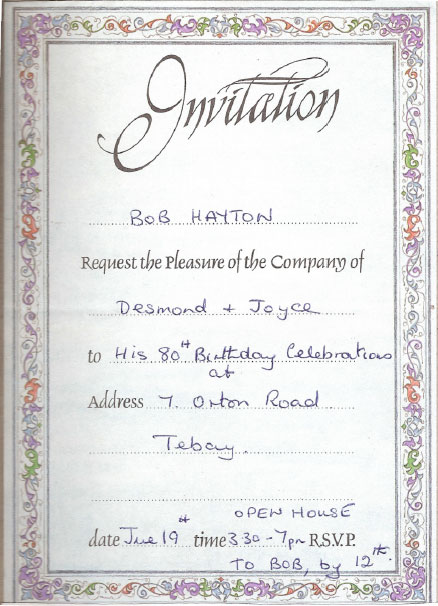 Invitation
BOB HAYTON
Request the Pleasure of the Company of
Desmond + Joyce
to His 80th Birthday Celebrations
at
Address 7. Orton Road
Tebay.
OPEN HOUSE
date June 19th time 3.30 - 7pm R.S.V.P.
TO BOB, by 12th.